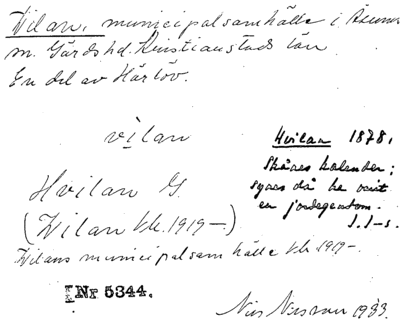 Vilan, municipalsamhälle i Åhus
m. Gärds hd. Kristianstads län
En del av Härlöv.
vilan
Hvilan 1878.
Skånes kalender;
synes då ha varit
en jordegendom.
I. I-s.
Hvilan G.
(Vilan bl. 1919-)
Vilans municipalsamhälle bl. 1919-.
INr 5344.
Nils Nilsson 1933.